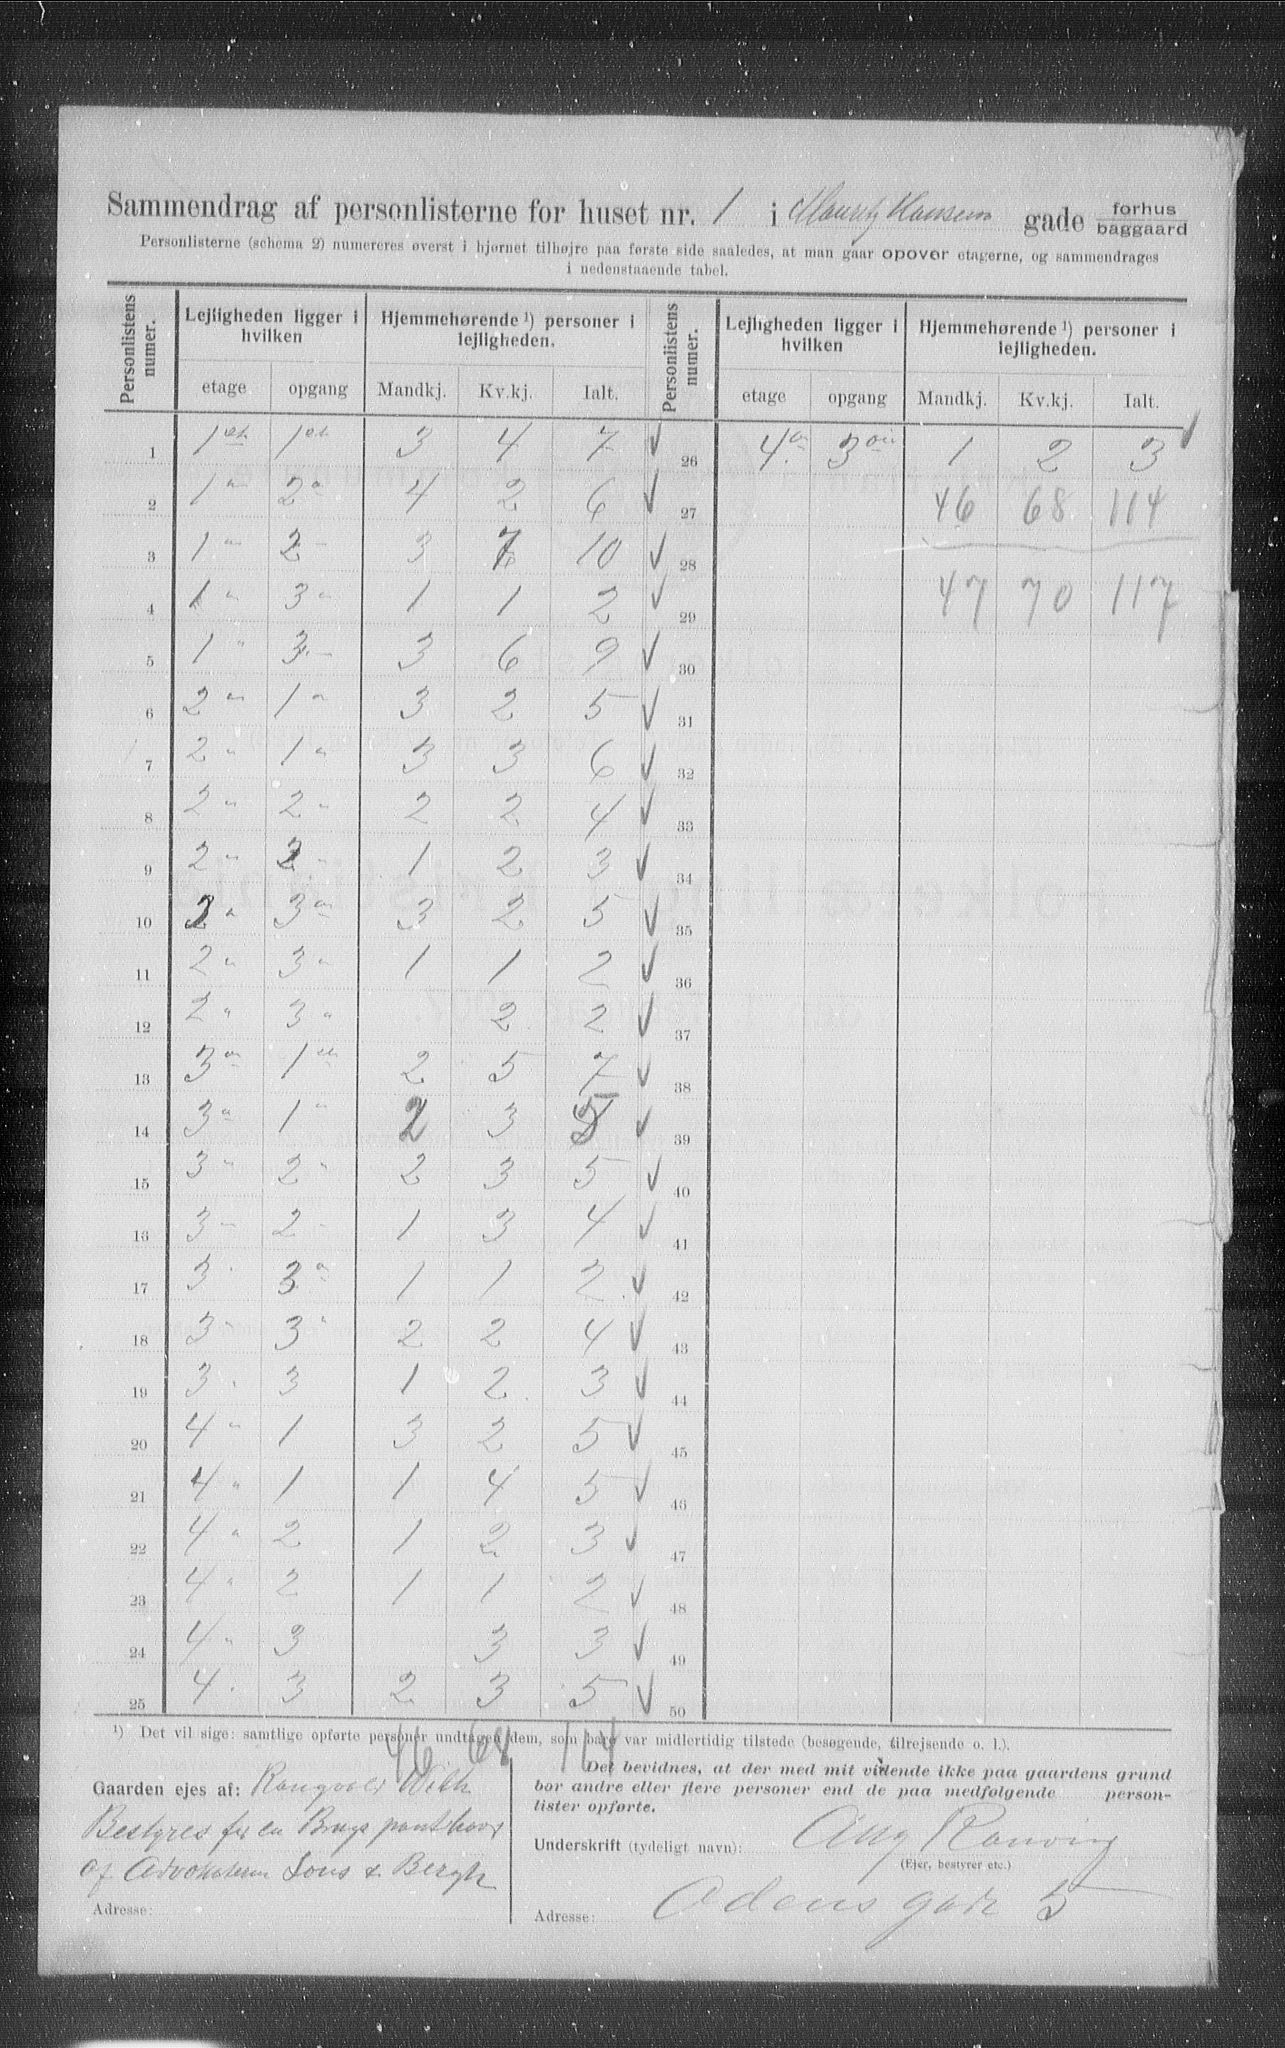 Sammendrag af personlisterne for huset nr. 1 i Mauritz Hansens gade forhus baggaard
Personlisterne (schema 2) numereres øverst i hjørnet tilhøjre paa første side saaledes, at man gaar opover etagerne, og sammendrages
i nedenstaaende tabel.
Personlistens numer. Lejligheden ligger i hvilken Hjemmehørende ¹) personer i lejligheden. Personlistens numer. Lejligheden ligger i hvilken Hjemmehørende ¹) personer i lejligheden.
etage opgang Mandkj. Kv.kj. Ialt. etage opgang Mandkj. Kv.kj. Ialt.
1 1 1 3 4 7 ✓ 26 4 3 1 2 3 ✓
2 1 " 2 " 4 2 6 ✓ 27 46 68 114
3 1 " 2 - 3 7 10 ✓ 28
4 1 " 3 " 1 1 2 ✓ 29 47 70 117
5 1 " 3 - 3 6 9 ✓ 30
6 2 " 1 " 3 2 5 ✓ 31
7 2 " 1 " 3 3 6 ✓ 32
8 2 " 2 " 2 2 4 ✓ 33
9 2 " 2 " 1 2 3 ✓ 34
10 2 " 3 " 3 2 5 ✓ 35
11 2 " 3 " 1 1 2 ✓ 36
12 2 " 3 " 2 2 ✓ 37
13 3 " 1 2 5 7 ✓ 38
14 3 " 1 " 2 3 5 ✓ 39
15 3 " 2 " 2 3 5 ✓ 40
16 3 - 2 - 1 3 4 ✓ 41
17 3 " 3 " 1 1 2 ✓ 42
18 3 " 3 " 2 2 4 ✓ 43
19 3 " 3 1 2 3 ✓ 44
20 4 " 1 3 2 5 ✓ 45
21 4 " 1 1 4 5 ✓ 46
22 4 " 2 1 2 3 ✓ 47
23 4 " 2 1 1 2 ✓ 48
24 4 " 3 3 3 ✓ 49
25 4 " 3 2 3 5 ✓ 50
¹) Det vil sige: samtlige opførte personer undtagen dem, som bare var midlertidig tilstede (besøgende, tilrejsende o. l.).
46 68 114
Gaarden ejes af: Rangvald With
Bestyres for en
af Advokaterne Lous & Bergh
Adresse:
Det bevidnes, at der med mit vidende ikke paa gaardens grund
bor andre eller flere personer end de paa medfølgende person-
lister opførte.
Underskrift (tydeligt navn): Aug
(Ejer, bestyrer etc.)
Adresse: Odens gade 5